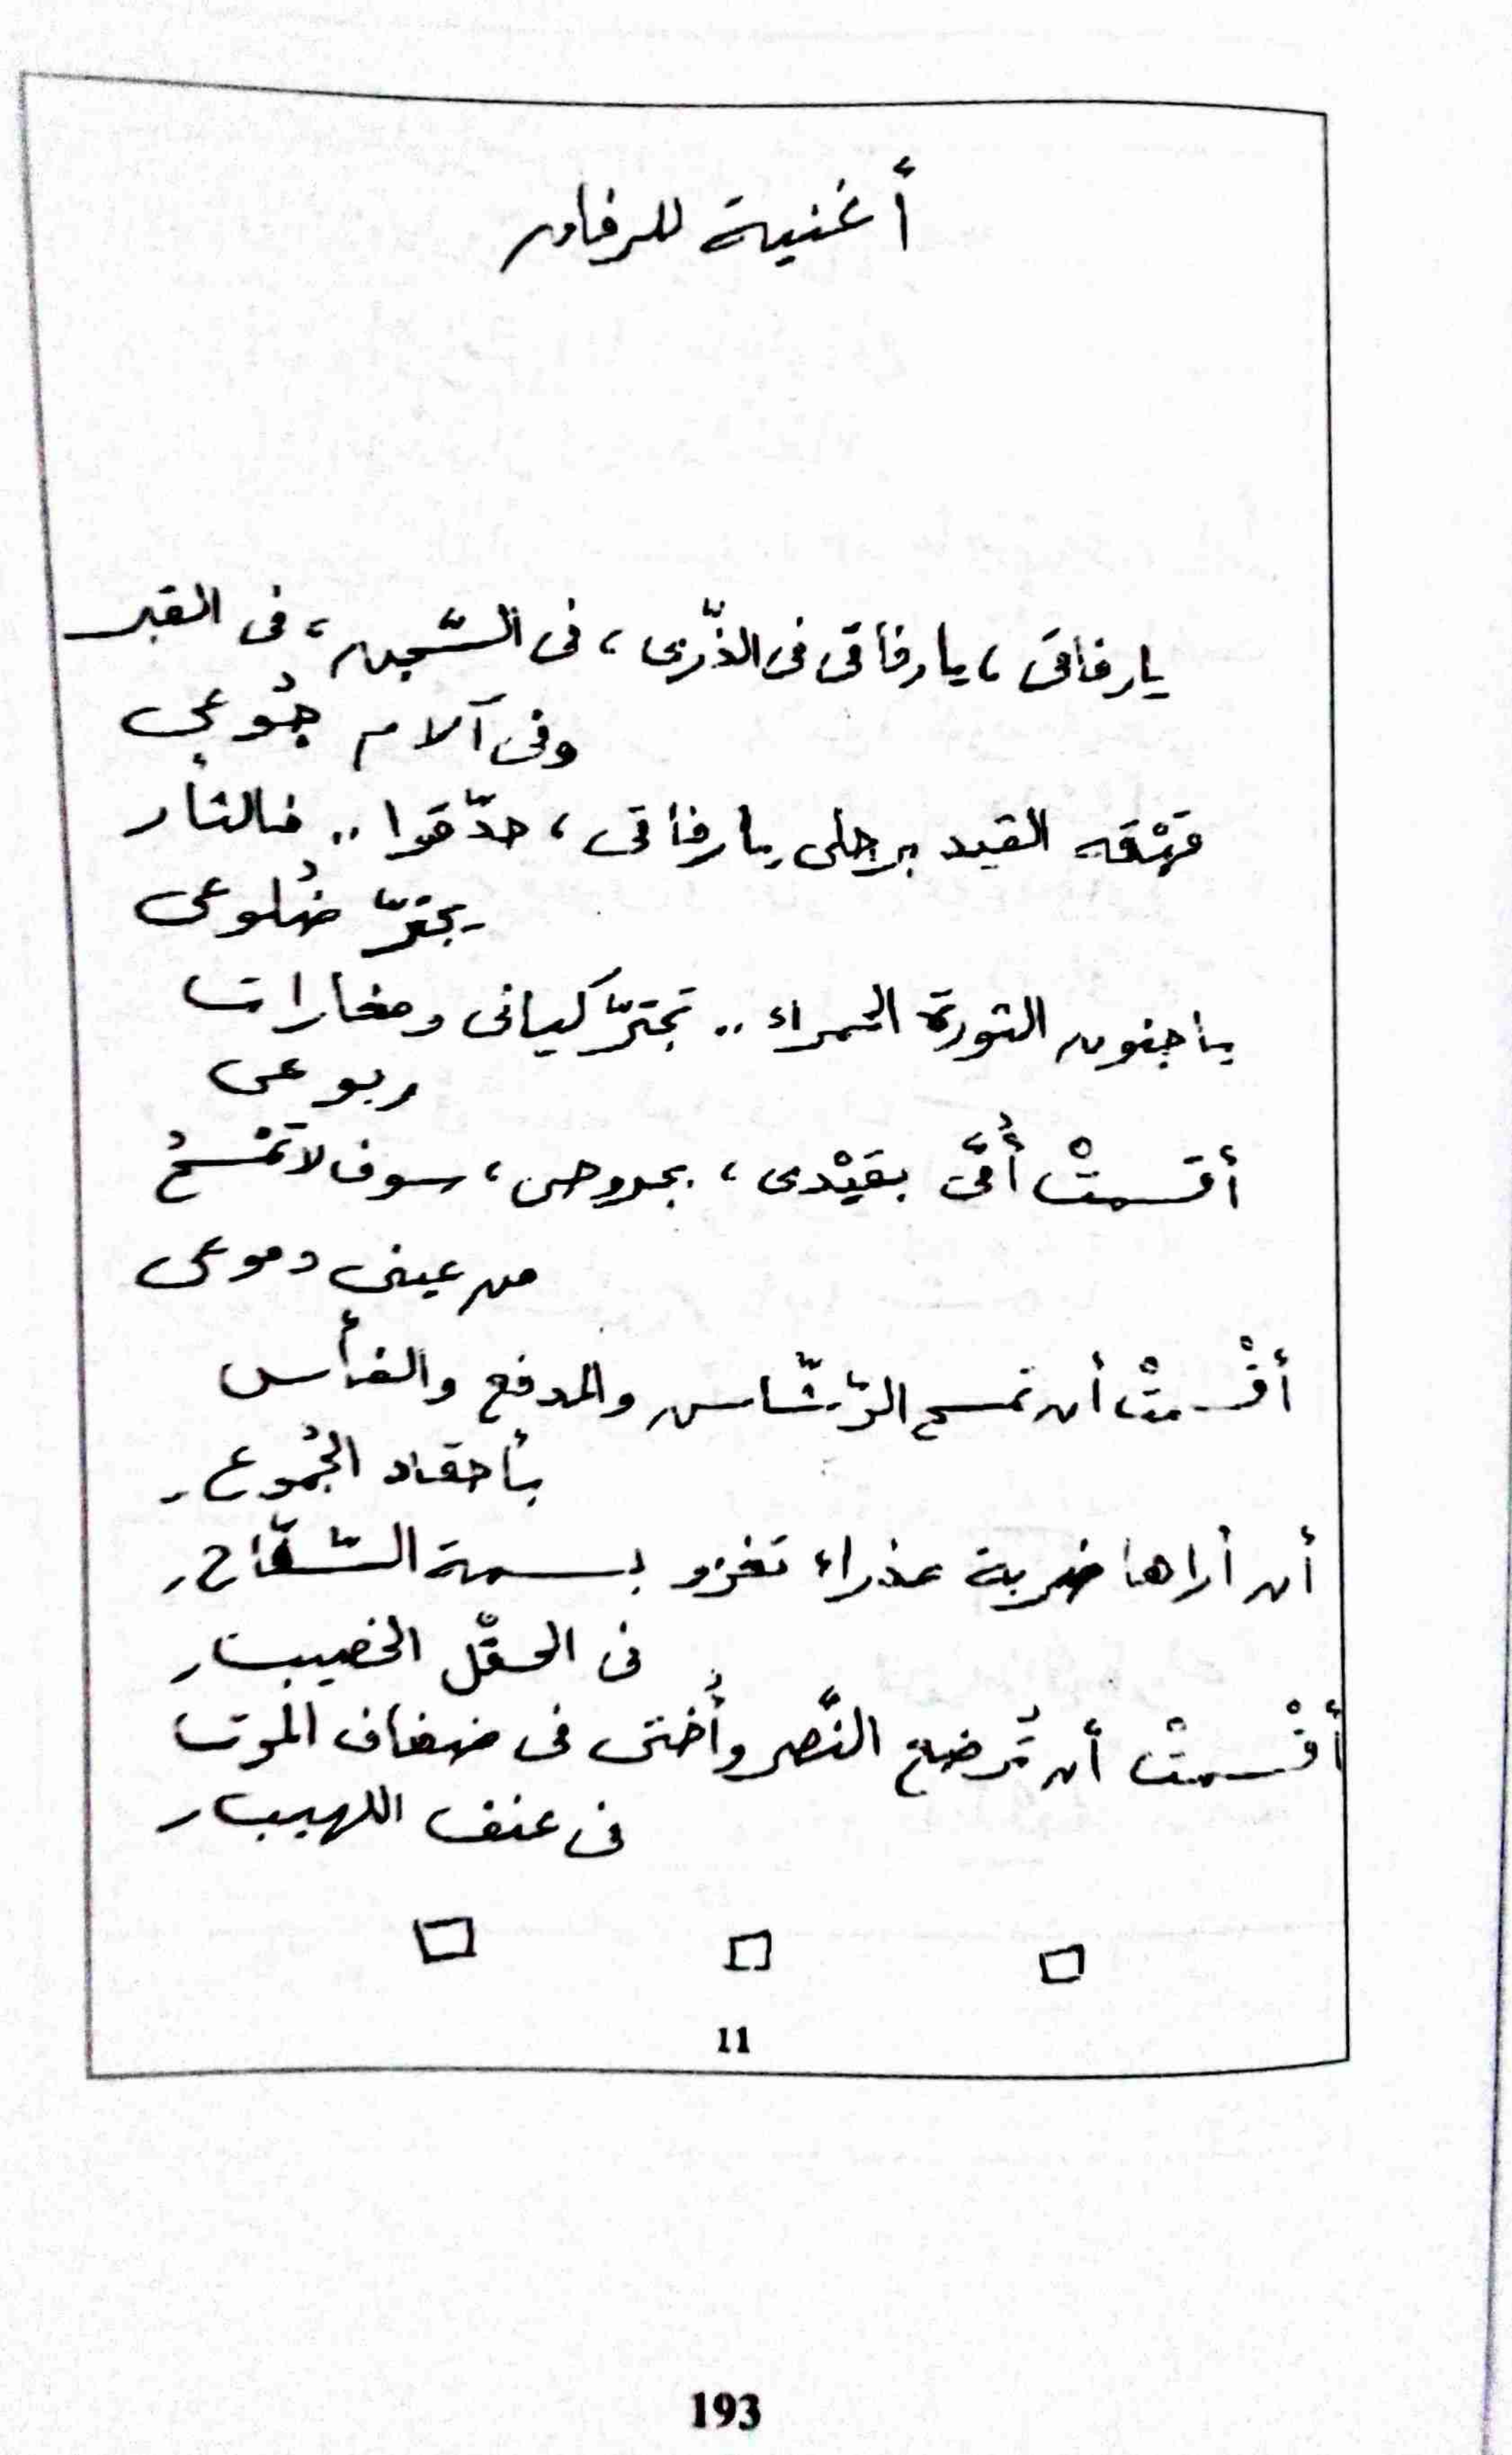 أغنية للرفاق
يا رفاقى ، يا رفاقى فى الذّرى ، فى السّجن ، فى القبر
وفى آلام جُوعى
قهْقه القيد برجلى يا رفاقى ، حدّقوا .. فالثأر
يجترّ ضُلوعى
يا جنون الثورة الحمراء .. تجترّ كيانى ومغارات
ربوعى
أقسمتْ أُمّى بقيْدى ، بجروحى ، سوف لا تمْسحُ
من عينى دموعى
أقْسمتْ أن تمسح الرّشّاس والمدفع والفأس
بأحقاد الجُموع
أن أراها ضربة عذراء تغزو بسمة السّفّاح
فى الحقْل الخصيب
أقْسمتْ أن تُرضع النّصر وأُختى فى ضفاف الموت
فى عنف اللهيب
□ □ □
11
193